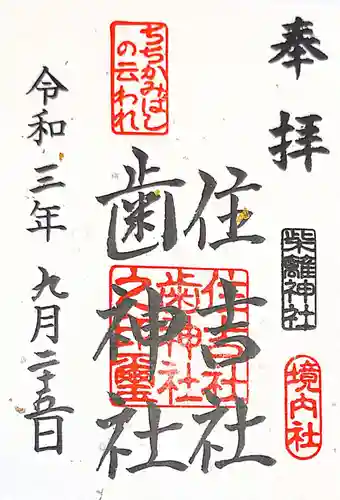 奉拝
柴籬神社
境内社
住吉社
歯神社
住吉社
歯神社
ちぢかみばし
の云われ
令和三年九月二十五日